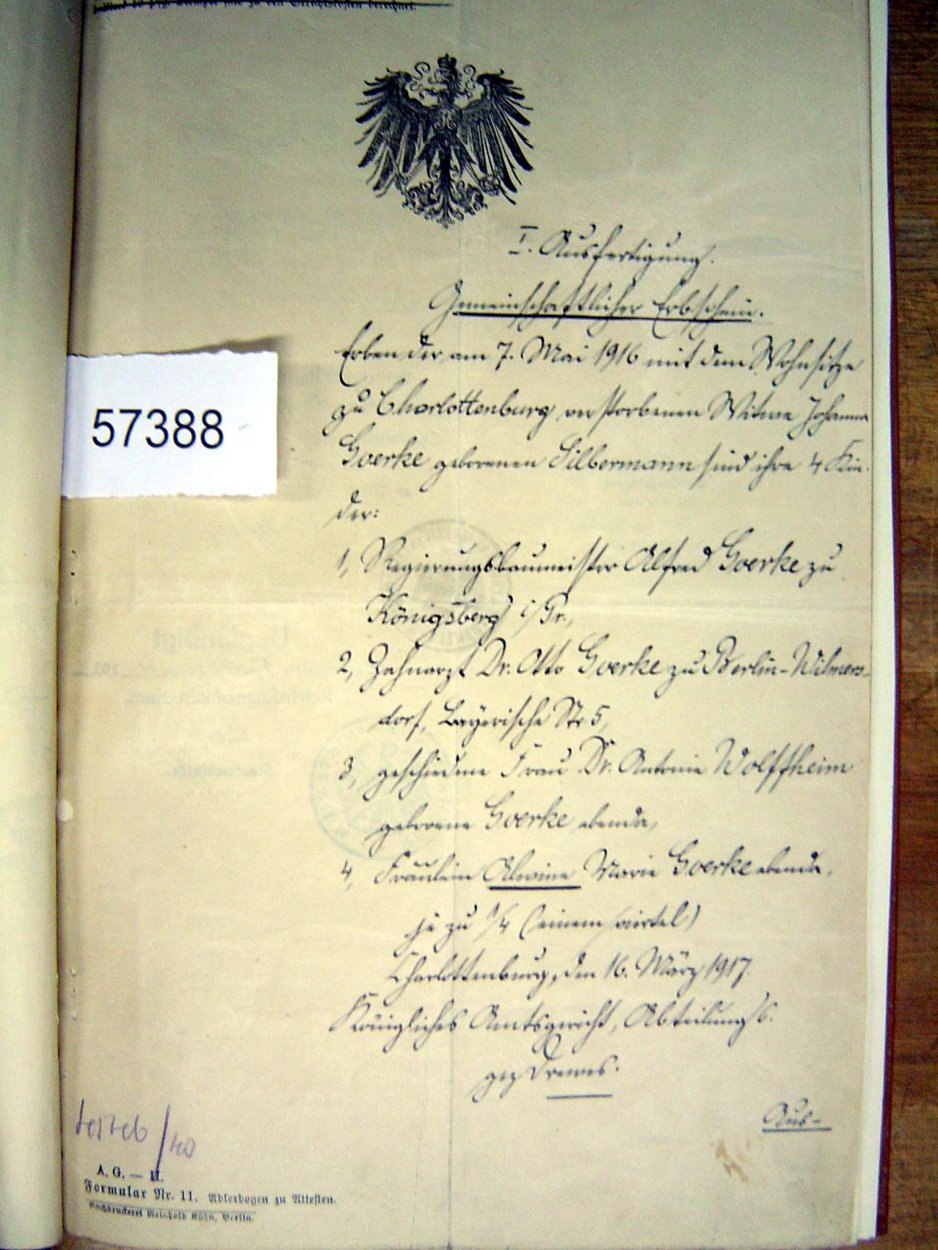 I. Ausfertigung.
Gemeinschaftlicher Erbschein.
Erben der am 7. Mai 1916 mit dem Wohnsitze
zu Charlottenburg verstorbenen Witwe Johanna
Goerke geborenen Silbermann sind ihre 4 Kin-
der:
57388
1, Regierungsbaumeister Alfred Goerke zu
Königsberg i/Pr.,
2, Zahnarzt Dr. Otto Goerke zu Berlin-Wilmers-
dorf, Bayerische Str 5,
3, geschiedene Frau Dr. Antonie Wolffheim
geborene Goerke ebenda,
4, Fräulein Alwine Marie Goerke ebenda,
je zu 1/4 (einem viertel)
Charlottenburg, den 16. März 1917.
Königliches Amtsgericht, Abteilung
gez Drewes.
Aus-
A. G. — II.
Formular Nr. 11. Adlerbogen zu Attesten.
Buchdruckerei Reinhold Kühn, Berlin.